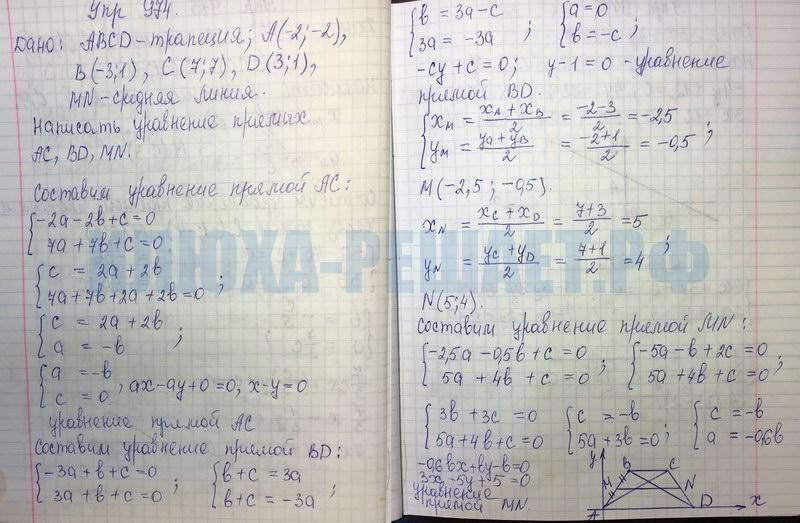 Упр 974.
Дано: ABCD-трапеция; A(-2;-2),
B(-3;1), C(7;7), D(3;1),
MN-средняя линия.
Написать уравнение прямых
AC, BD, MN.
Составим уравнение прямой AC:
{-2a-2b+c=0
7a+7b+c=0
{c = 2a+2b
7a+7b+2a+2b=0 ;
{c = 2a+2b
a = -b ;
{a = -b
c = 0 , ax-ay+0=0, x-y=0
уравнение прямой AC
Составим уравнение прямой BD:
{-3a+b+c=0
3a+b+c=0 ; {b+c=3a
b+c=-3a ;
{b = 3a-c
3a = -3a ; {a=0
b=-c ;
-cy+c=0; y-1=0 - уравнение
прямой BD.
{x_M = (x_A+x_B)/2 = (-2-3)/2 = -2,5
y_M = (y_A+y_B)/2 = (-2+1)/2 = -0,5 ;
M(-2,5; -0,5).
x_N = (x_C+x_D)/2 = (7+3)/2 = 5
y_N = (y_C+y_D)/2 = (7+1)/2 = 4 ;
N(5;4).
Составим уравнение прямой MN:
{-2,5a-0,5b+c=0
5a+4b+c=0 ; {-5a-b+2c=0
5a+4b+c=0 ;
{3b+3c=0
5a+4b+c=0 {c=-b
5a+3b=0 ; {c=-b
a=-0,6b
-0,6bx+by-b=0
3x-5y+5=0
уравнение
прямой MN.
y B C
M N
A D x
ЮЮХА-РЕШАЕТ.РФ